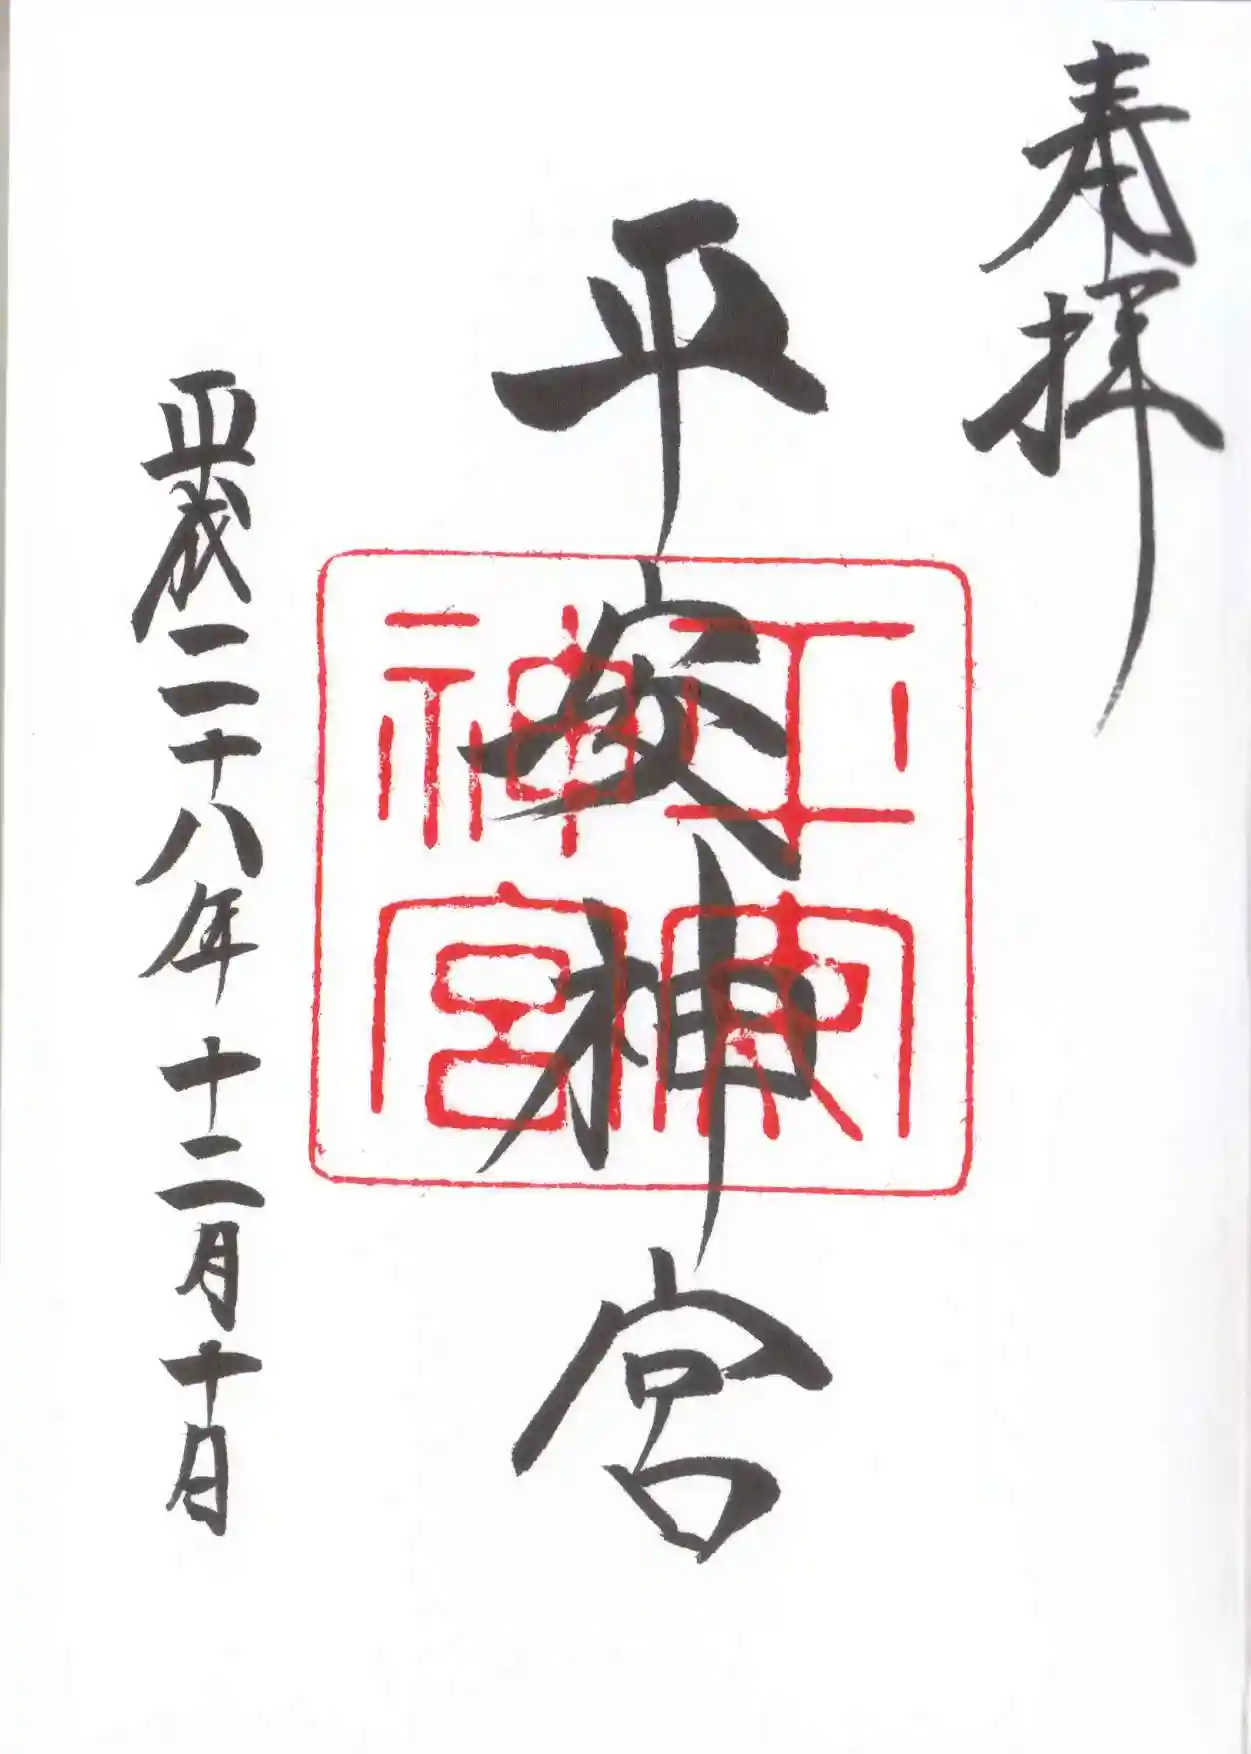 奉拝
平安神宮
平安神宮
平成二十八年 十二月十日